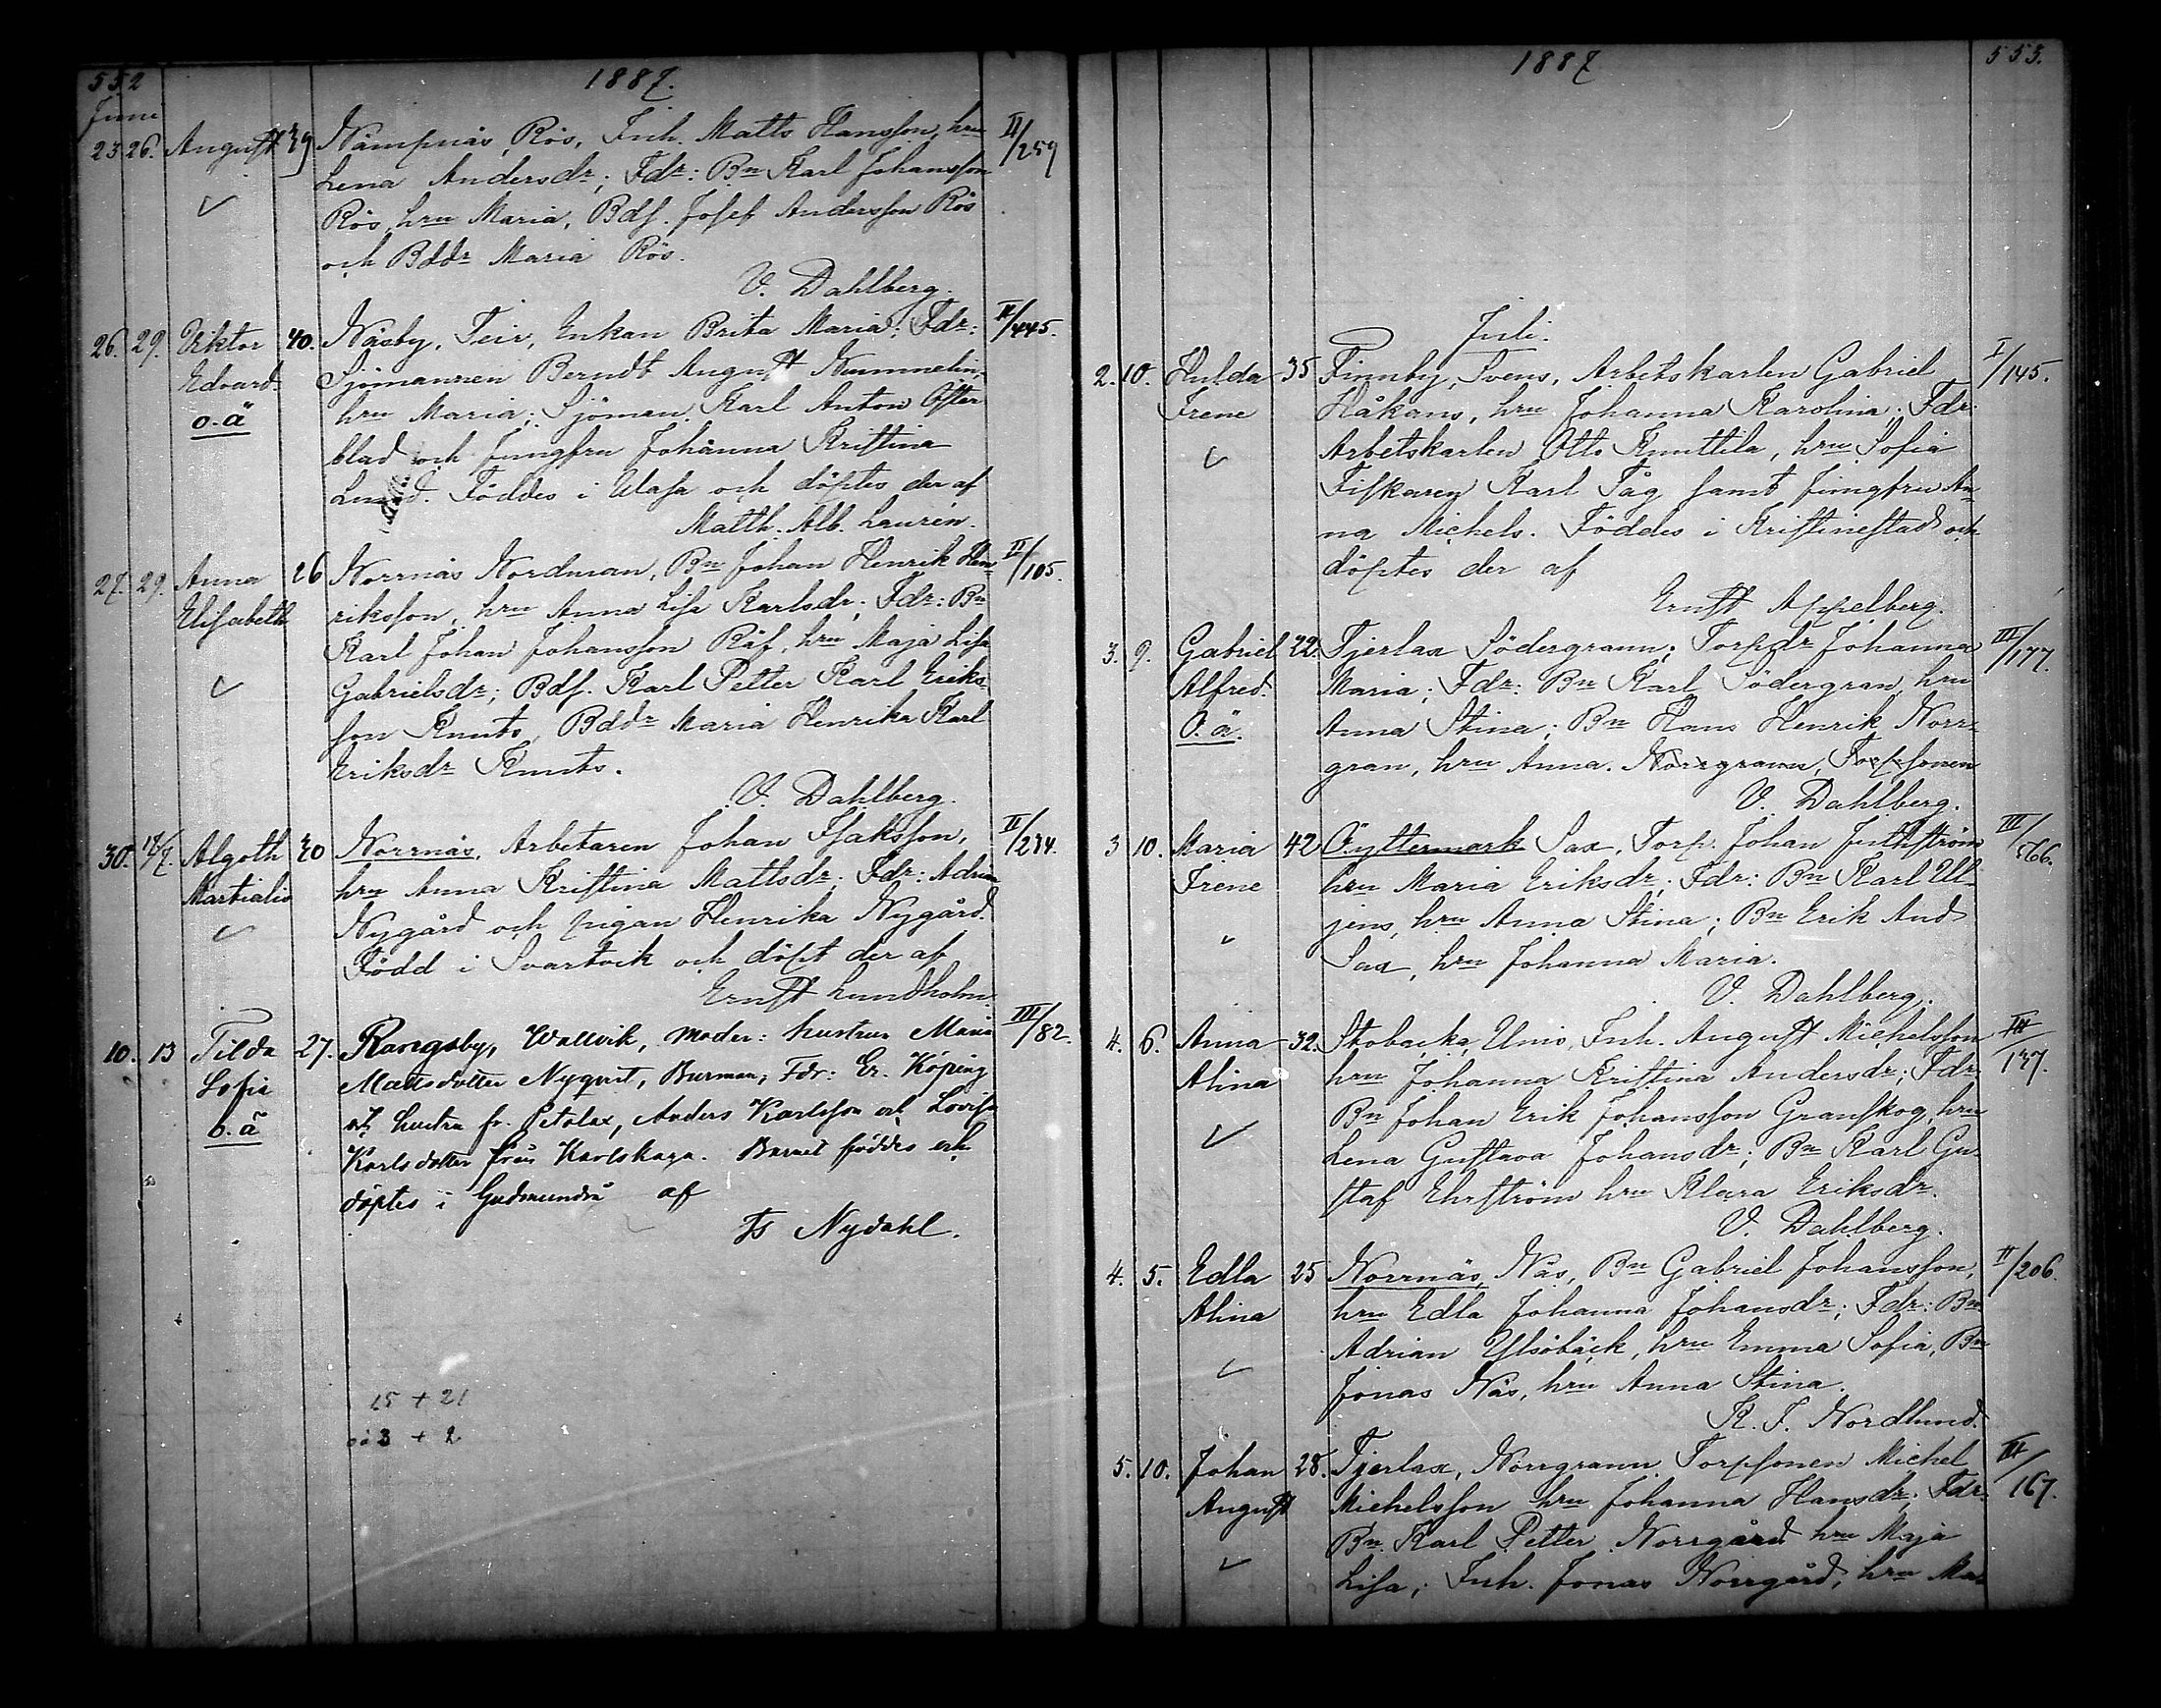 552
1887.
Juni
23. 26. August 39 Nämpnäs, Rös, Inh. Matts Hansson, hru II/259
Lena Andersdr; Fdr: Bn Karl Johansson
Rös, hru Maria, Bds. Josef Andersson Rös
och Bddr Maria Rös.
V. Dahlberg.
26. 29. Viktor 40. Näsby, Teir, Enkan Brita Maria; Fdr: II/445.
Edvard Sjömannen Berndt August Nummelin,
o.ä hru Maria; Sjöman Karl Anton Öster
blad och Jungfru Johanna Kristina
Lund. Föddes i Wasa och döptes der af
Matth. Alb. Laurén.
27. 29. Anna 26 Norrnäs Nordman, Bn Johan Henrik Hen II/105.
Elisabeth riksson, hru Anna Lisa Karlsdr; Fdr: Bn
Karl Johan Johansson Räf, hru Maja Lisa
Gabrielsdr; Bds. Karl Petter Karl Eriks
son Knuts, Bddr Maria Henrika Karl
Eriksdr Knuts.
V. Dahlberg.
30. 17/7. Algoth 30 Norrnäs, Arbetaren Johan Isaksson, II/234.
Martialis hru Anna Kristina Mattsdr; Fdr: Adrian
Nygård och pigan Henrika Nygård.
Född i Svartvik och döpt der af
Ernst Lundholm.
10. 13 Tilda 27. Rangsby, Wallvik, moder: hustrun Maria III/82.
Sofia Mattsdotter Nyqvist, Burman; Fdr: Er. Köping
o.ä och hustru fr. Petalax, Anders Karlsson och Lovisa
Karlsdotter från Karlskoga. Barnet föddes och
döptes i Gudmundrå af
Nydahl.
15 + 21
oä 3 + 2
1887
553.
Juli.
2. 10. Hulda 35 Finnby, Svens, Arbetskarlen Gabriel I/145.
Irene Håkans, hru Johanna Karolina; Fdr:
Arbetskarlen Otto Knuttila, hru Sofia
Fiskaren Karl Tåg samt Jungfru An
na Michels. Föddes i Kristinestad och
döptes der af
Ernst Appelberg.
3. 9. Gabriel 22. Tjerlax Södergrann; Torpdr Johanna III/177.
Alfred. Maria; Fdr: Bn Karl Södergran, hru
O.ä. Anna Stina; Bn Hans Henrik Norr
gran, hru Anna. Norrgrann, Torpsonen
V. Dahlberg.
3 10. Maria 42 Öfyttermark Sax, Torp. Johan Juthström III/566.
Irene hru Maria Eriksdr; Fdr: Bn Karl Ul
jens, hru Anna Stina; Bn Erik And
Sax, hru Johanna Maria.
V. Dahlberg.
4. 6. Anna 32. Skobacka, Unis, Inh. August Michelsson III/137.
Alina hru Johanna Kristina Andersdr; Fdr:
Bn Johan Erik Johansson Granskog, hru
Lena Gustava Johansdr; Bn Karl Gu
staf Ehrström hru Klara Eriksdr.
V. Dahlberg.
4. 5. Edla 25 Norrnäs, Näs, Bn Gabriel Johansson, II/206.
Alina hru Edla Johanna Johansdr; Fdr: Bn
Adrian Ylsöbäck, hru Emma Sofia, Bn
Jonas Näs, hru Anna Stina.
K. F. Nordlund.
5. 10. Johan 28. Tjerlax, Norrgrann. Torpsonen Michel III/167.
August Michelsson hru Johanna Hansdr; Fdr:
Bn. Karl Petter Norrgård hru Maja
Lisa; Inh. Jonas Norrgård, hru Ma